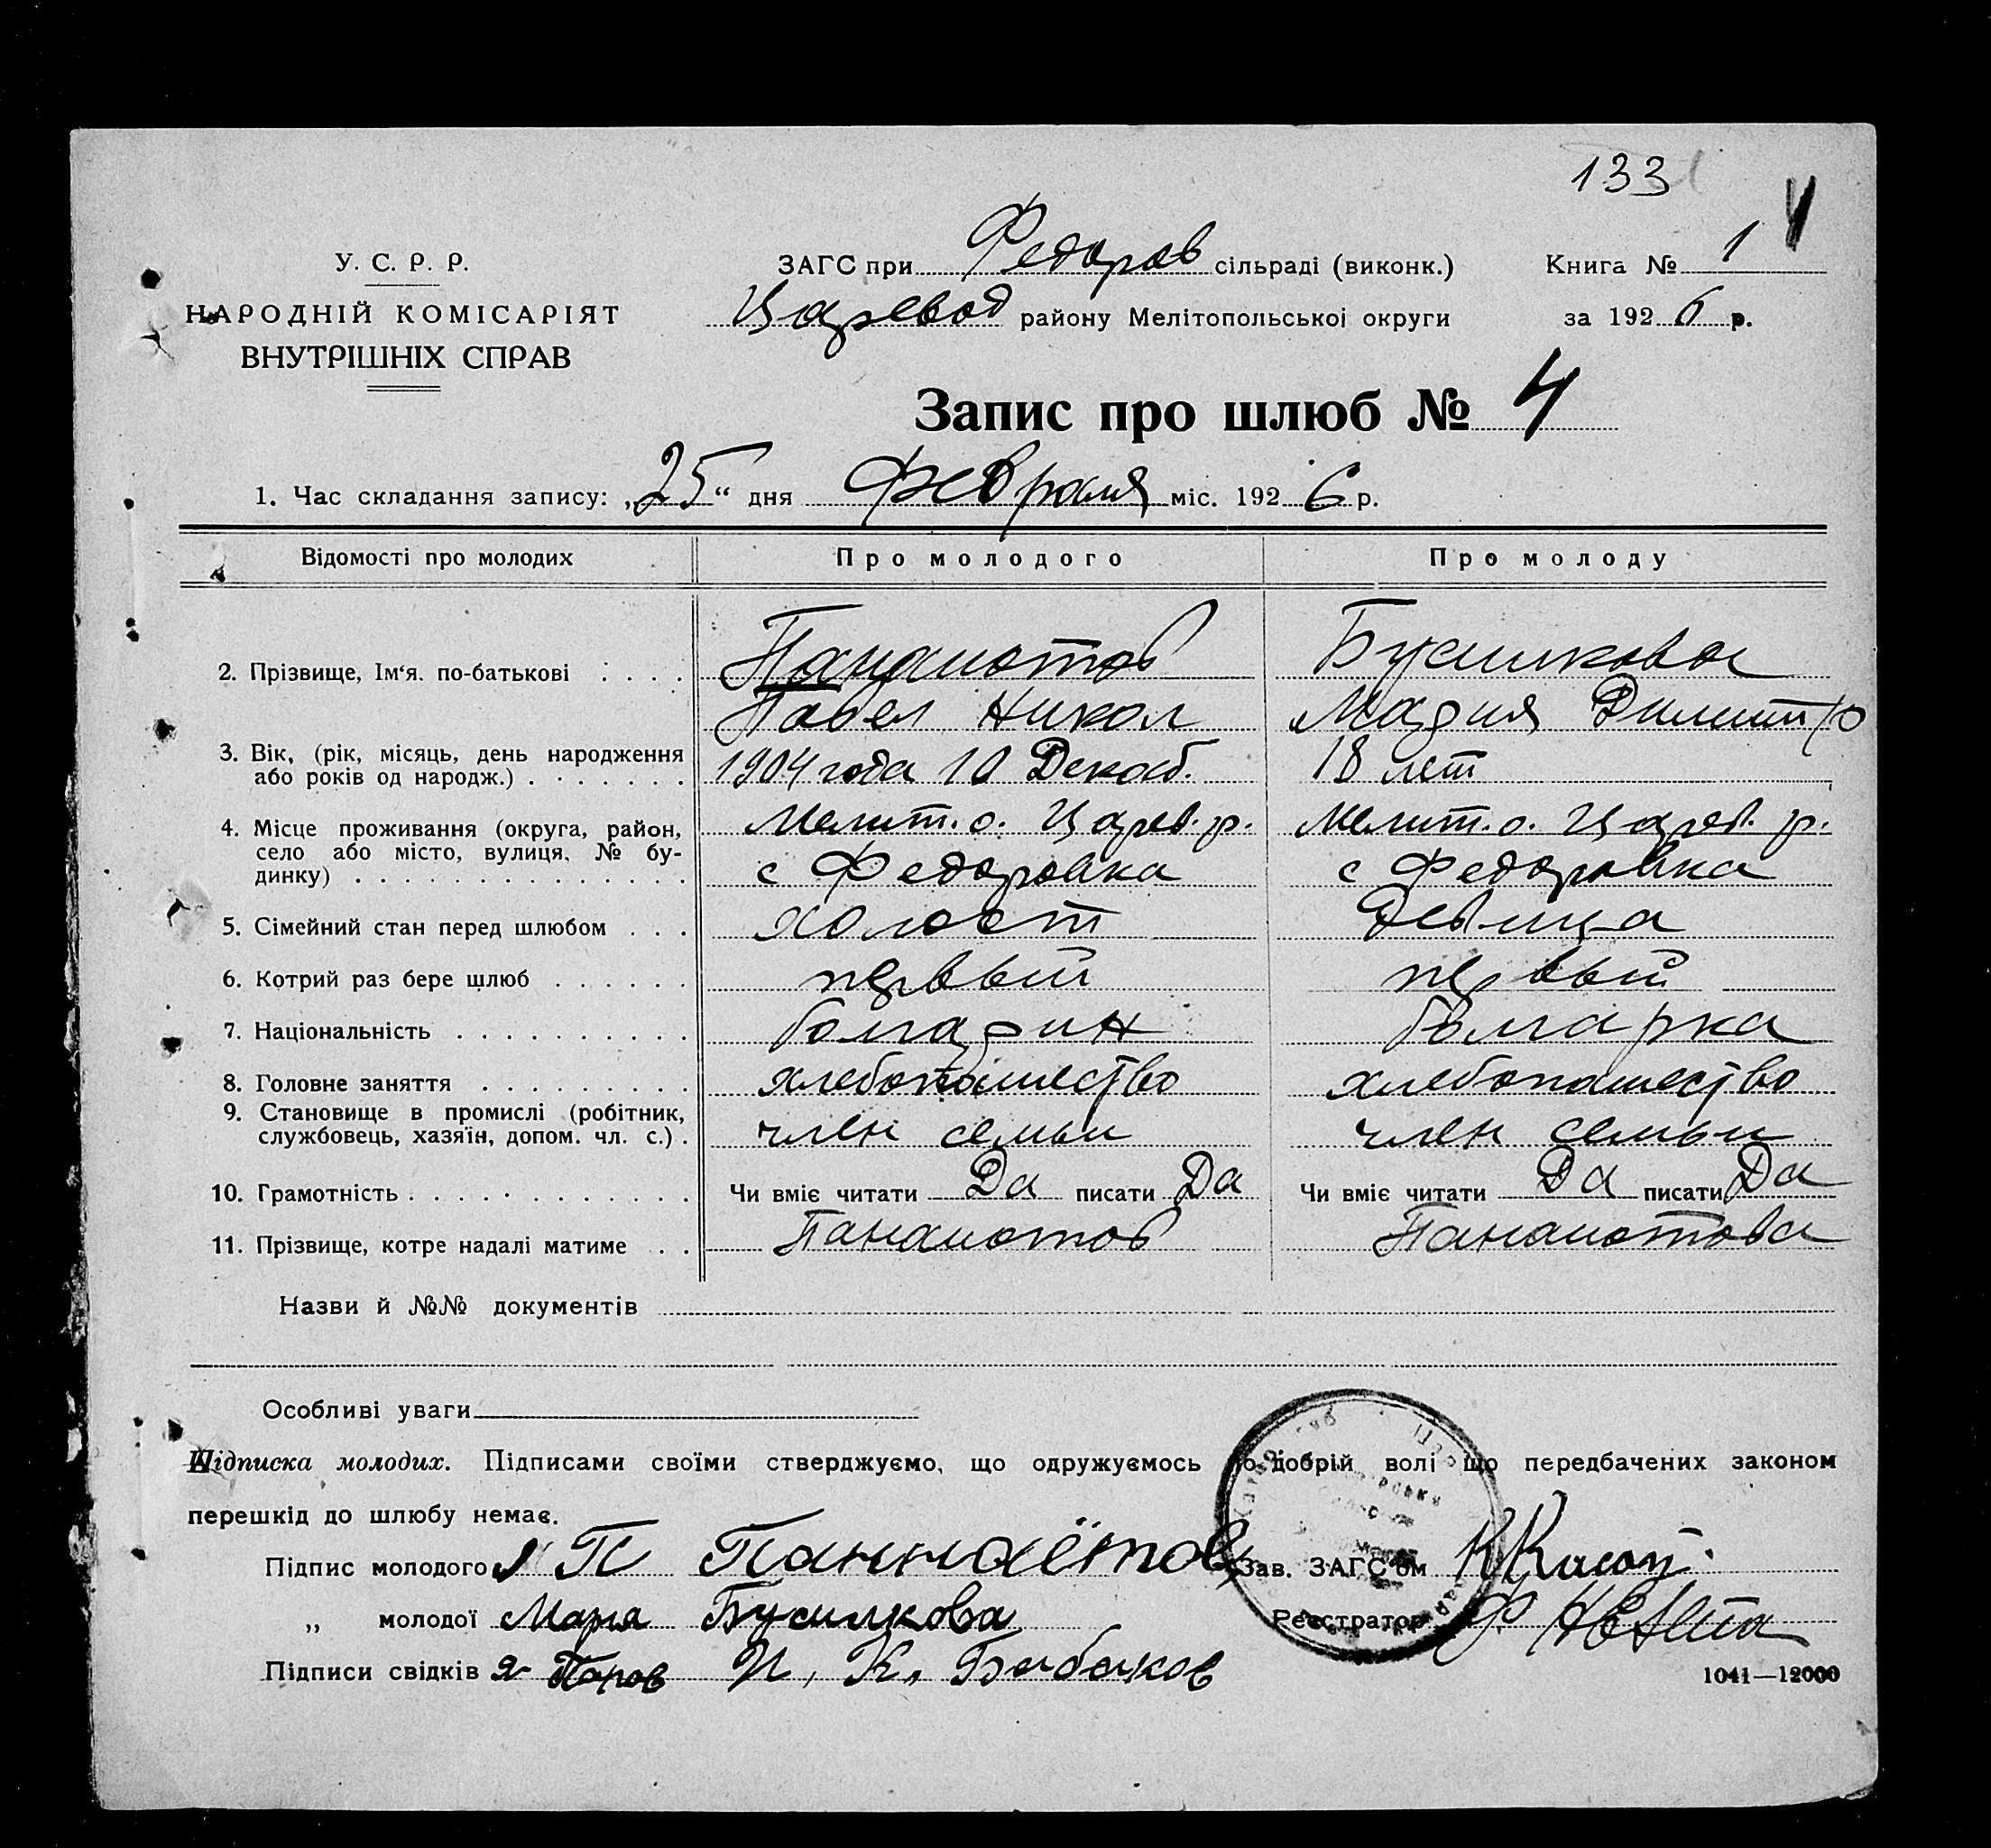 133
4
У. С. Р. Р.
НАРОДНІЙ КОМІСАРІЯТ
ВНУТРІШНІХ СПРАВ
ЗАГС при Федоров сільраді (виконк.)
Царевод району Мелітопольської округи
Книга № 1
за 1926 р.
Запис про шлюб № 4
1. Час складання запису: „25“ дня Февраля міс. 1926 р.
Відомості про молодих Про молодого Про молоду
2. Прізвище, Ім‘я. по-батькові . . . . Панаиотов Бусилкова
Павел Никол Мария Димитр
3. Вік, (рік, місяць, день народження
або років од народж.) . . . . . . . 1904 года 10 Декаб. 18 лет
4. Місце проживання (округа, район,
село або місто, вулиця, № бу-
динку) . . . . . . . . . . . . . .
Мелит. о. Царев. р. Мелит. о. Царев. р.
с Федоровка с Федоровка
5. Сімейний стан перед шлюбом . . . холост Девица
6. Котрий раз бере шлюб . . . . . . первый первый
7. Національність . . . . . . . . . . болгарин болгарка
8. Головне заняття . . . . . . . . . хлебопашество хлебопашество
9. Становище в промислі (робітник,
службовець, хазяїн, допом. чл. с.) . член семьи член семьи
10. Грамотність . . . . . . . . . . . . Чи вміє читати Да писати Да Чи вміє читати Да писати Да
11. Прізвище, котре надалі матиме . . Панаиотов Панаиотова
Назви й №№ документів
Особливі уваги
Підписка молодих. Підписами своїми стверджуємо, що одружуємось по добрій волі що передбачених законом
перешкід до шлюбу немає.
Підпис молодого П Паннаётов Зав. ЗАГС'ом
„ молодої Мария Бусилкова Реєстратор
Підписи свідків я Папов И, К, Бабаков
1041—12000